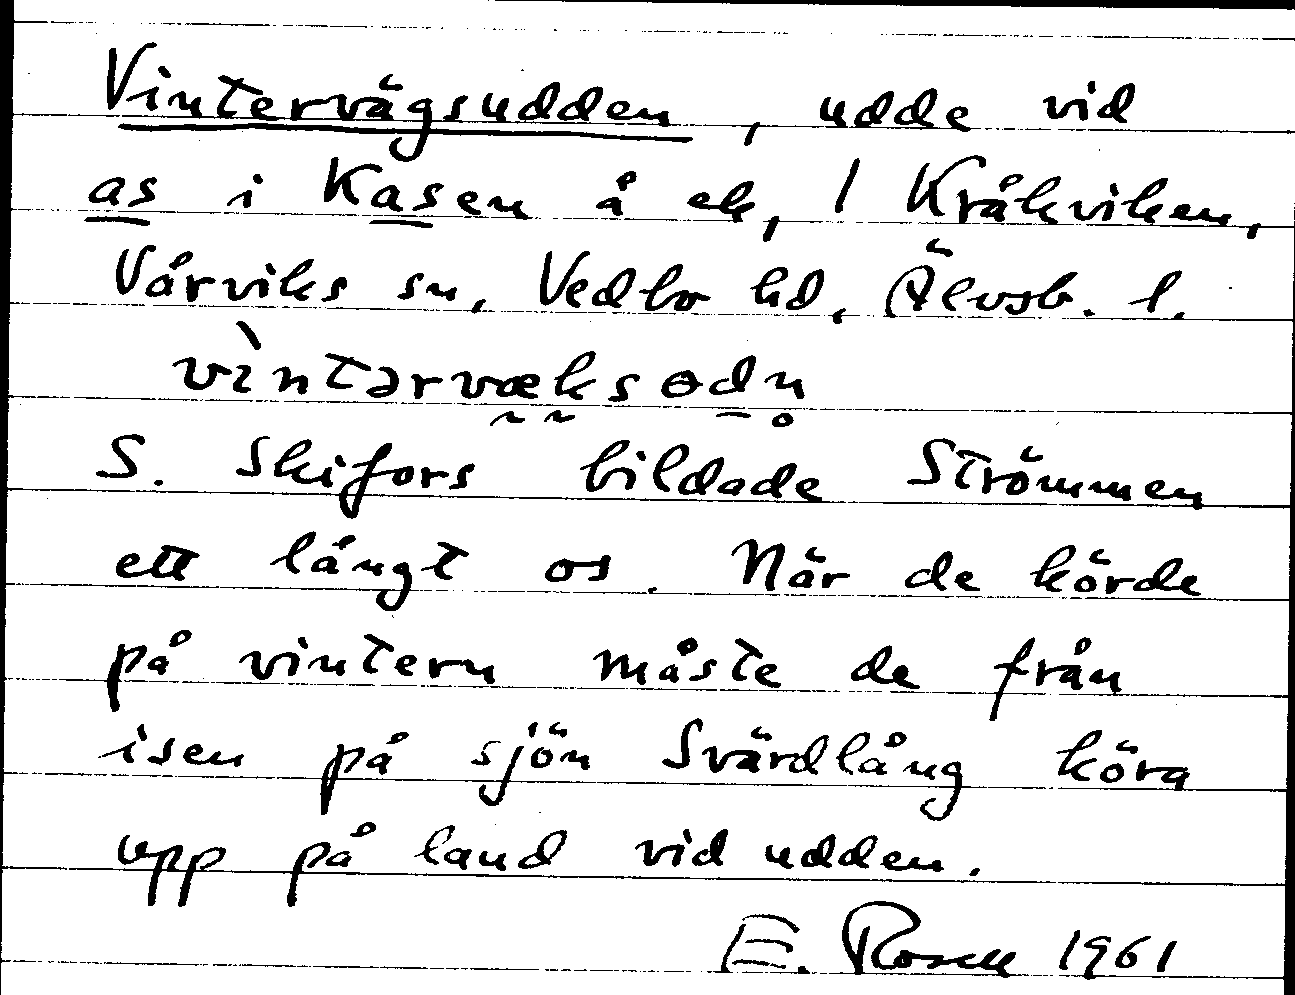 Vintervägsudden, udde vid
as i Kasen å ek, 1 Kråkviken,
Vårviks sn, Vedbo hd, Älvsb. l.
vìntərvæksodn̥
S. Skifors bildade Strömmen
ett långt os. När de körde
på vintern måste de från
isen på sjön Svärdlång köra
upp på land vid udden.
E. Rosell 1961